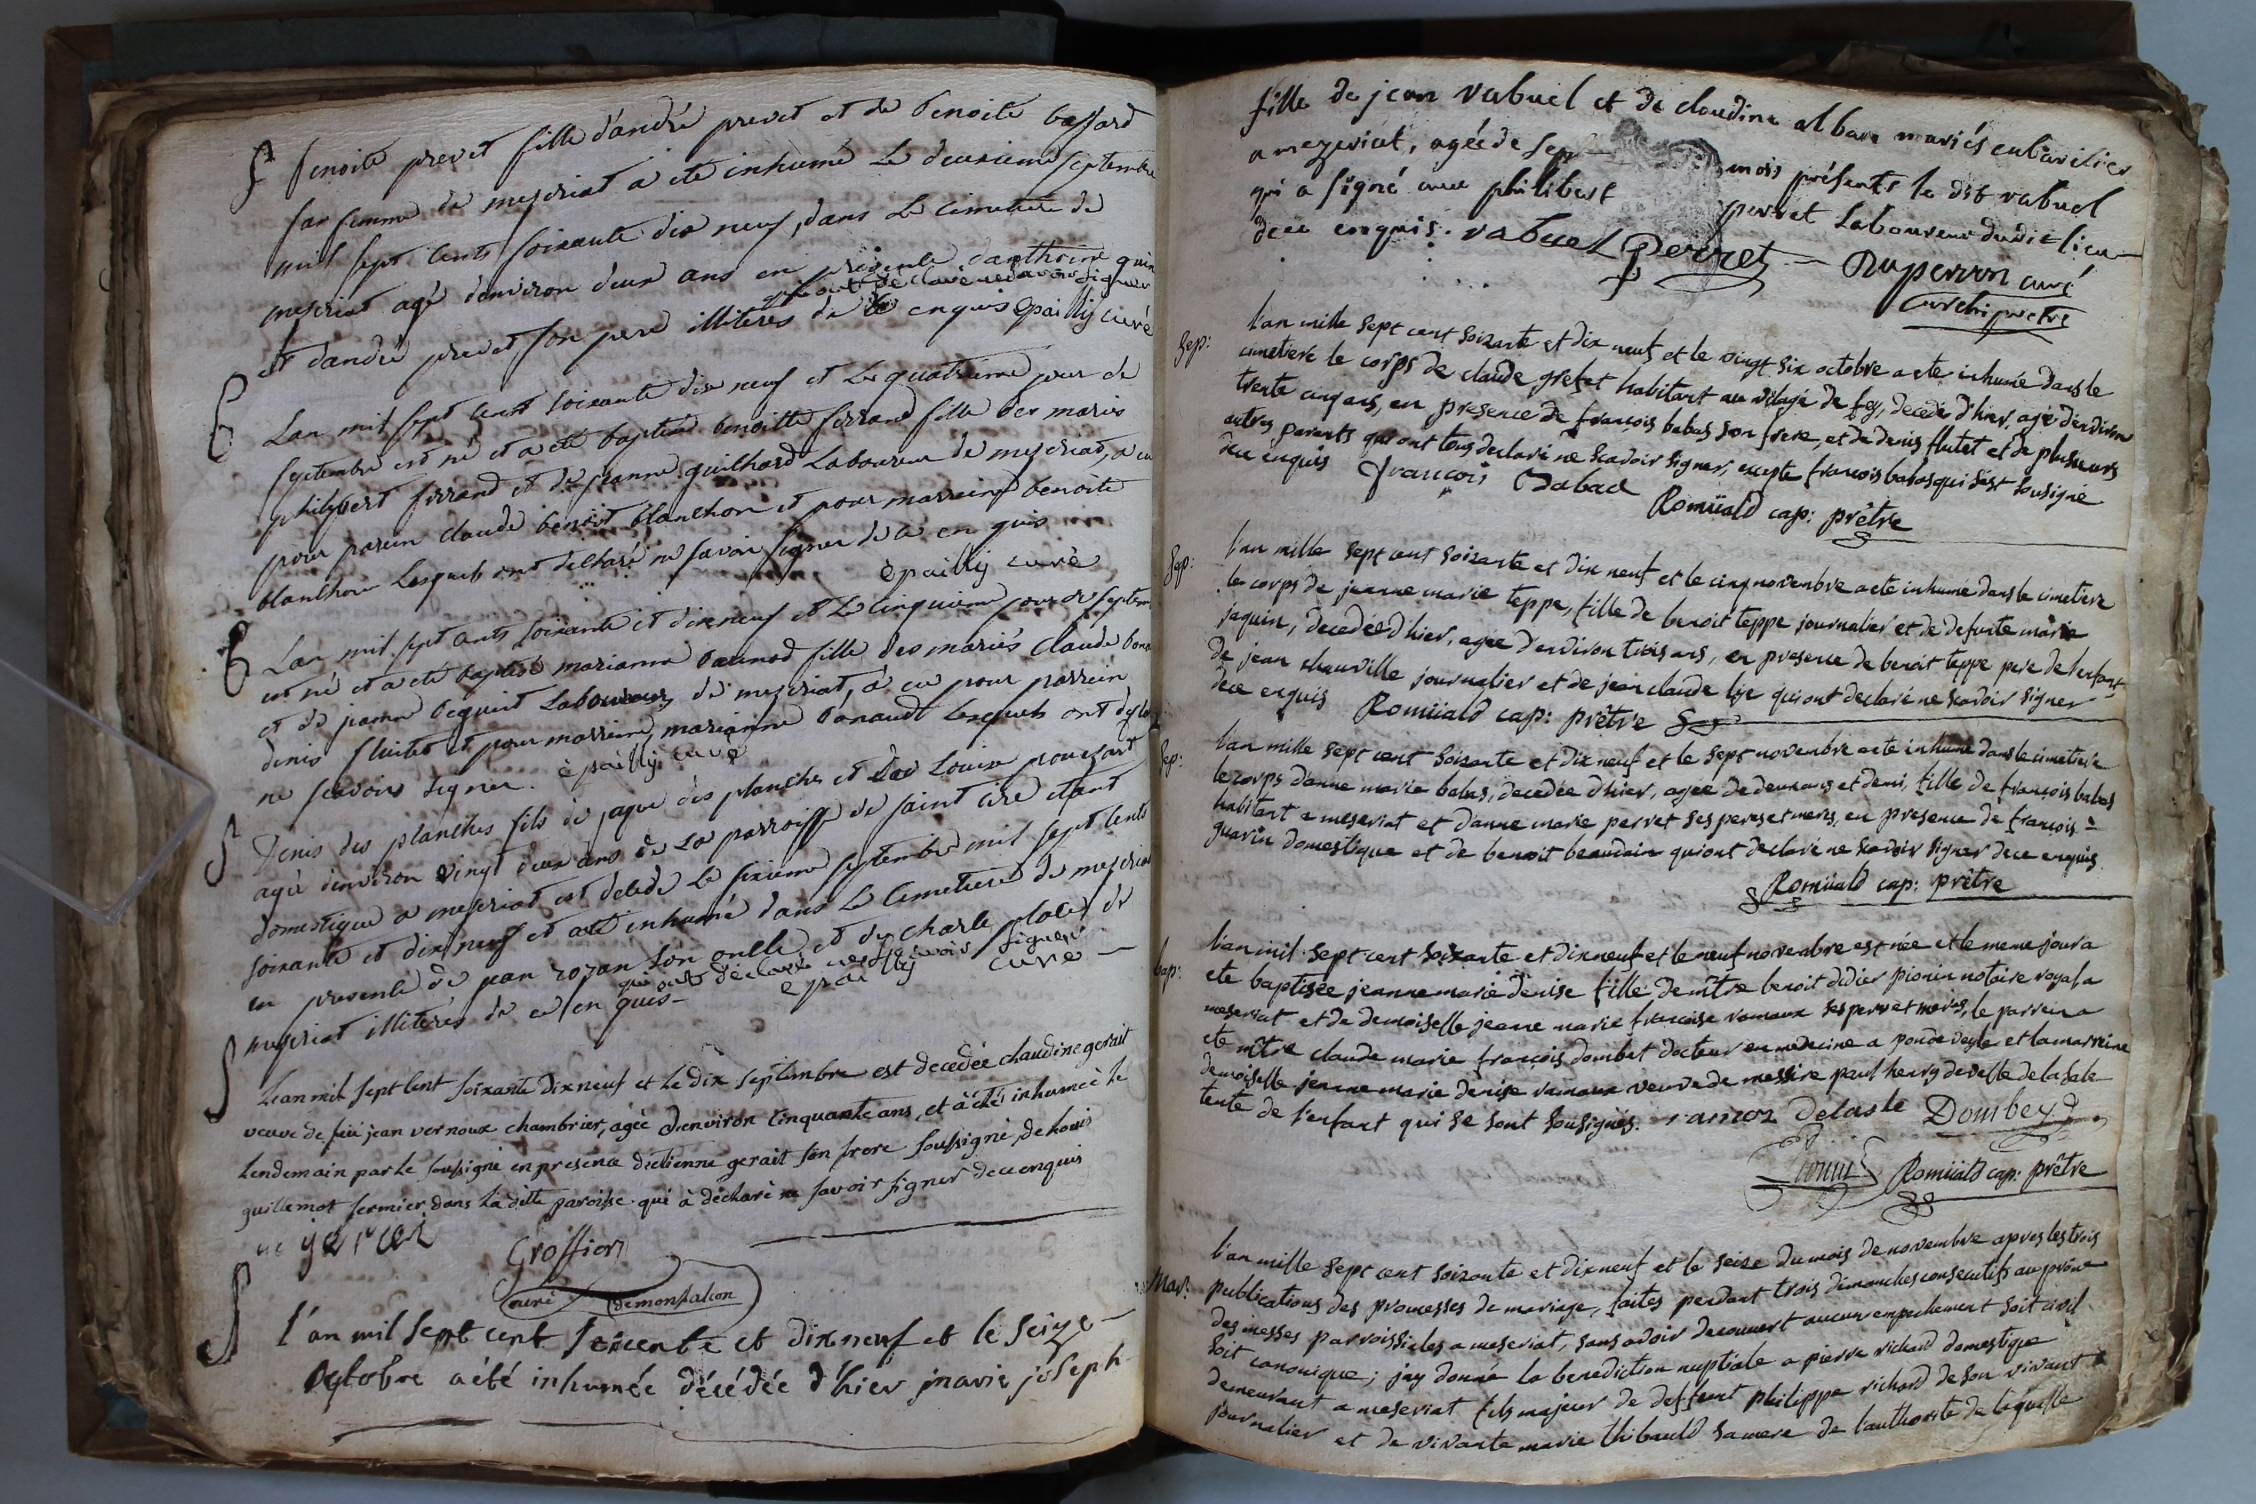 S benoite prevet fille d'andré prevet et de benoite bassard
sa femme de meseriat a eté inhumé Le deuxieme septembre
mil sept cents soixante dix neuf, dans Le cimetiere de
meseriat agé denviron deux ans en presence danthoine
qui ont déclaré ne savoir signer
et dandré prevet son pere illiterés de ce enquis epailly curé
B Lan mil sept cents soixante dix neuf et Le quatrieme jour de
septembre est né et a eté baptisé benoitte ferrand fille des mariés
philybert ferrand et de jeanne guilhard Laboureur de meseriat, a eu
pour parein claude benoit blanchon et pour marreine benoite
blanchon Lesquels ont declaré ne savoir signer de ce en quis
epailly curé
B Lan mil sept cents soixante et dix neuf et Le cinquieme jour de septem
est né et a eté baptisé marianne fille des mariés claude
et de jeanne beguint Laboureurs de meseriat, a eu pour parrein
denis fluitet et pour marreine marianne Lesquels ont
ne scavoir signer. epailly curé
S Denis des planches fils de jaque des planches et de Louise
agé denviron vingt deux ans de La parroisse de saint cire etant
domestique a meseriat est decedé Le sixieme septembre mil sept cents
soixante et dix neuf et a eté inhumé dans Le Cimetiere de meseriat
en presence de jean rozan son oncle et de charle de
qui ont déclaré ne scavoir signer
meseriat illiterés de ce en quis epailly curé
S L'ean mil sept cent soixante dix neuf et le dix septembre est decedée claudine gerait
veuve de feü jean vernoux chambrier, agée d'environ cinquante ans, et à été inhumeè le
lendemain par le soussigné en presence d'etienne gerait son frere soussigné, de louis
guillemot fermier dans la ditte paroisse qui à déclaré ne savoir signer de ce enquis
Groffier
curé demonfalcon
S l'an mil sept cent soixante et dix neuf et le seize
octobre a été inhumée décédée d'hier marie joseph
fille de jean vabuel et de claudine albam mariés
a mezeriat, agée de sep mois présents le dit vabuel
qui a signé avec philibert perret Laboureur dudit lieu
de ce enquis. vabuel Perret Duperron curé
archiprêtre
Sep: l'an mille sept cent soixante et dix neuf et le vingt six octobre a ete inhumé dans le
cimetiere le corps de claude grefet habitant au vilage de fey, decedé d'hier, agé d'environ
trente cinq ans, en presence de françois babas son frere, et de denis flutet et de plusieurs
autres parents qui ont tous declaré ne scavoir signer, excepte françois babas qui s'est sousigné
de ce enquis François Babad
Romüald cap: prêtre
Sep: l'an mille sept cent soixante et dix neuf et le cinq novembre a ete inhumé dans le cimetiere
le corps de jeanne marie teppe, fille de benoit teppe journalier et de defunte marie
jaquin, decedée d'hier, agée d'environ trois ans, en presence de benoit teppe pere de l'enfant
de jean chauville journalier et de jean claude qui ont declaré ne scavoir signer
de ce enquis Romüald cap: prêtre
Sep: l'an mille sept cent soixante et dix neuf et le sept novembre a ete inhumé dans le cimetiere
le corps d'anne marie babas, decedée d'hier, agée de deux ans et demi, fille de françois babas
habitant a meseriat et d'anne marie perret ses pere et mere, en presence de françois
guarin domestique et de benoit beaudain qui ont declaré ne scavoir signer de ce enquis.
Romüald cap: prêtre
bap: l'an mil sept cent soixante et dix neuf et le neuf novembre est née et le meme jour a
ete baptisée jeanne marie denise fille de mître benoit didier pionin notaire royal a
meseriat et de demoiselle jeanne marie françoise ramaux ses pere et mere, le parrein a
ete mître claude marie françois dombet docteur en medecine a ponde veyle et la marreine
demoiselle jeanne marie denise ramaux veuve de messire paul henry develle delasale
tente de l'enfant qui se sont sousignés. ramoz delasle Dombey
Romüald cap: prêtre
Mar: l'an mille sept cent soixante et dix neuf et le seise du mois de novembre apres les trois
publications des promesses de mariage, faites pendant trois dimanches consecutifs au prône
des messes parroissiales a meseriat, sans avoir decouvert aucun empechement soit civil
soit canonique; jay donné la benediction nuptiale a pierre richard domestique
demeurant a meseriat fils majeur de deffunt philippe richard de son vivant
journalier et de vivante marie thibauld sa mere de l'authorité de laquelle